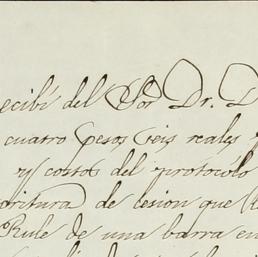 ecibí del Sor Dr. D
cuatro pesos seis reales
y costos del protocolo
critura de cesion que
Rule de una barra en